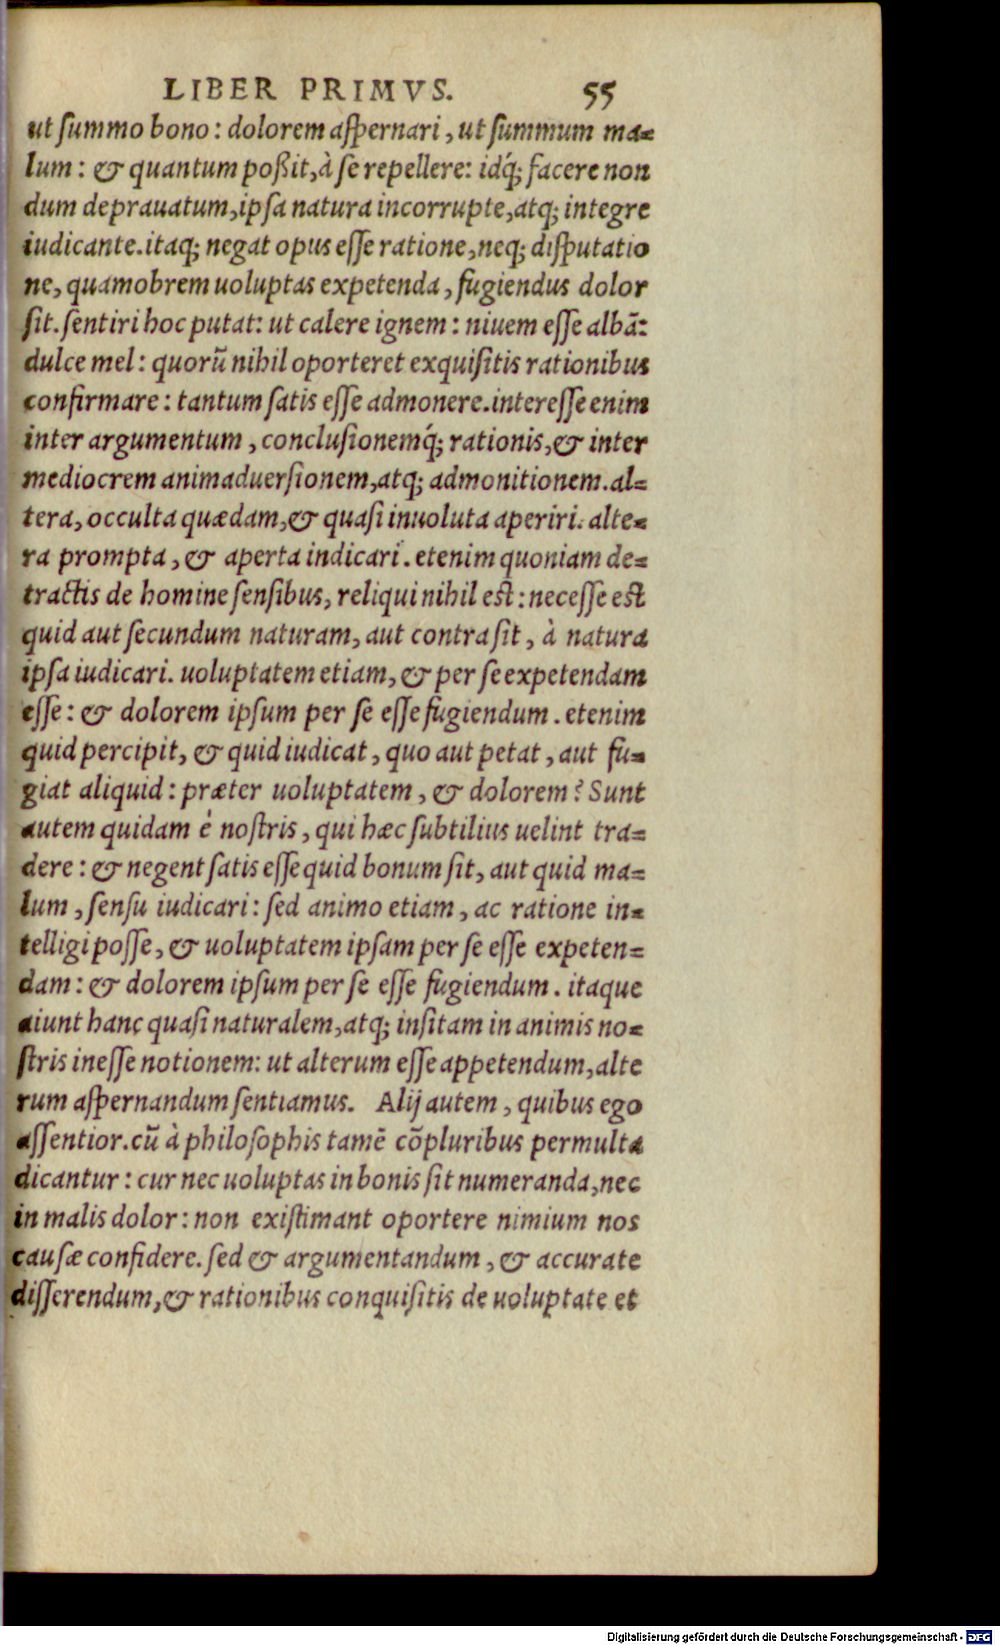 LIBER PRIMVS. 55
ut ſummo bono : dolorem aſpernari, ut ſummum ma=
lum : & quantum poßit, à ſe repellere: idq́; facere non
dum deprauatum, ipſa natura incorrupte, atq; integre
iudicante. itaq; negat opus eſſe ratione, neq; diſputatio
ne, quamobrem uoluptas expetenda, fugiendus dolor
ſit. ſentiri hoc putat: ut calere ignem : niuem eſſe albā:
dulce mel : quorū nihil oporteret exquiſitis rationibus
confirmare : tantum ſatis eſſe admonere. intereſſe enim
inter argumentum, concluſionemq́; rationis, & inter
mediocrem animaduerſionem, atq; admonitionem. al=
tera, occulta quædam, & quaſi inuoluta aperiri. alte=
ra prompta, & aperta indicari. etenim quoniam de=
tractis de homine ſenſibus, reliqui nihil est : neceſſe est
quid aut ſecundum naturam, aut contra ſit, à natura
ipſa iudicari. uoluptatem etiam, & per ſe expetendam
eſſe : & dolorem ipſum per ſe eſſe fugiendum. etenim
quid percipit, & quid iudicat, quo aut petat, aut fu=
giat aliquid : præter uoluptatem, & dolorem? Sunt
autem quidam è noſtris, qui hæc ſubtilius uelint tra=
dere : & negent ſatis eſſe quid bonum ſit, aut quid ma=
lum, ſenſu iudicari : ſed animo etiam, ac ratione in=
telligi poſſe, & uoluptatem ipſam per ſe eſſe expeten=
dam : & dolorem ipſum per ſe eſſe fugiendum. itaque
aiunt hanc quaſi naturalem, atq; inſitam in animis no=
ſtris ineſſe notionem: ut alterum eſſe appetendum, alte
rum aſpernandum ſentiamus. Alij autem, quibus ego
aſſentior. cū à philoſophis tamē cōpluribus permulta
dicantur : cur nec uoluptas in bonis ſit numeranda, nec
in malis dolor : non exiſtimant oportere nimium nos
cauſæ confidere. ſed & argumentandum, & accurate
diſſerendum, & rationibus conquiſitis de uoluptate et
Digitalisierung gefördert durch die Deutsche Forschungsgemeinschaft - DFG